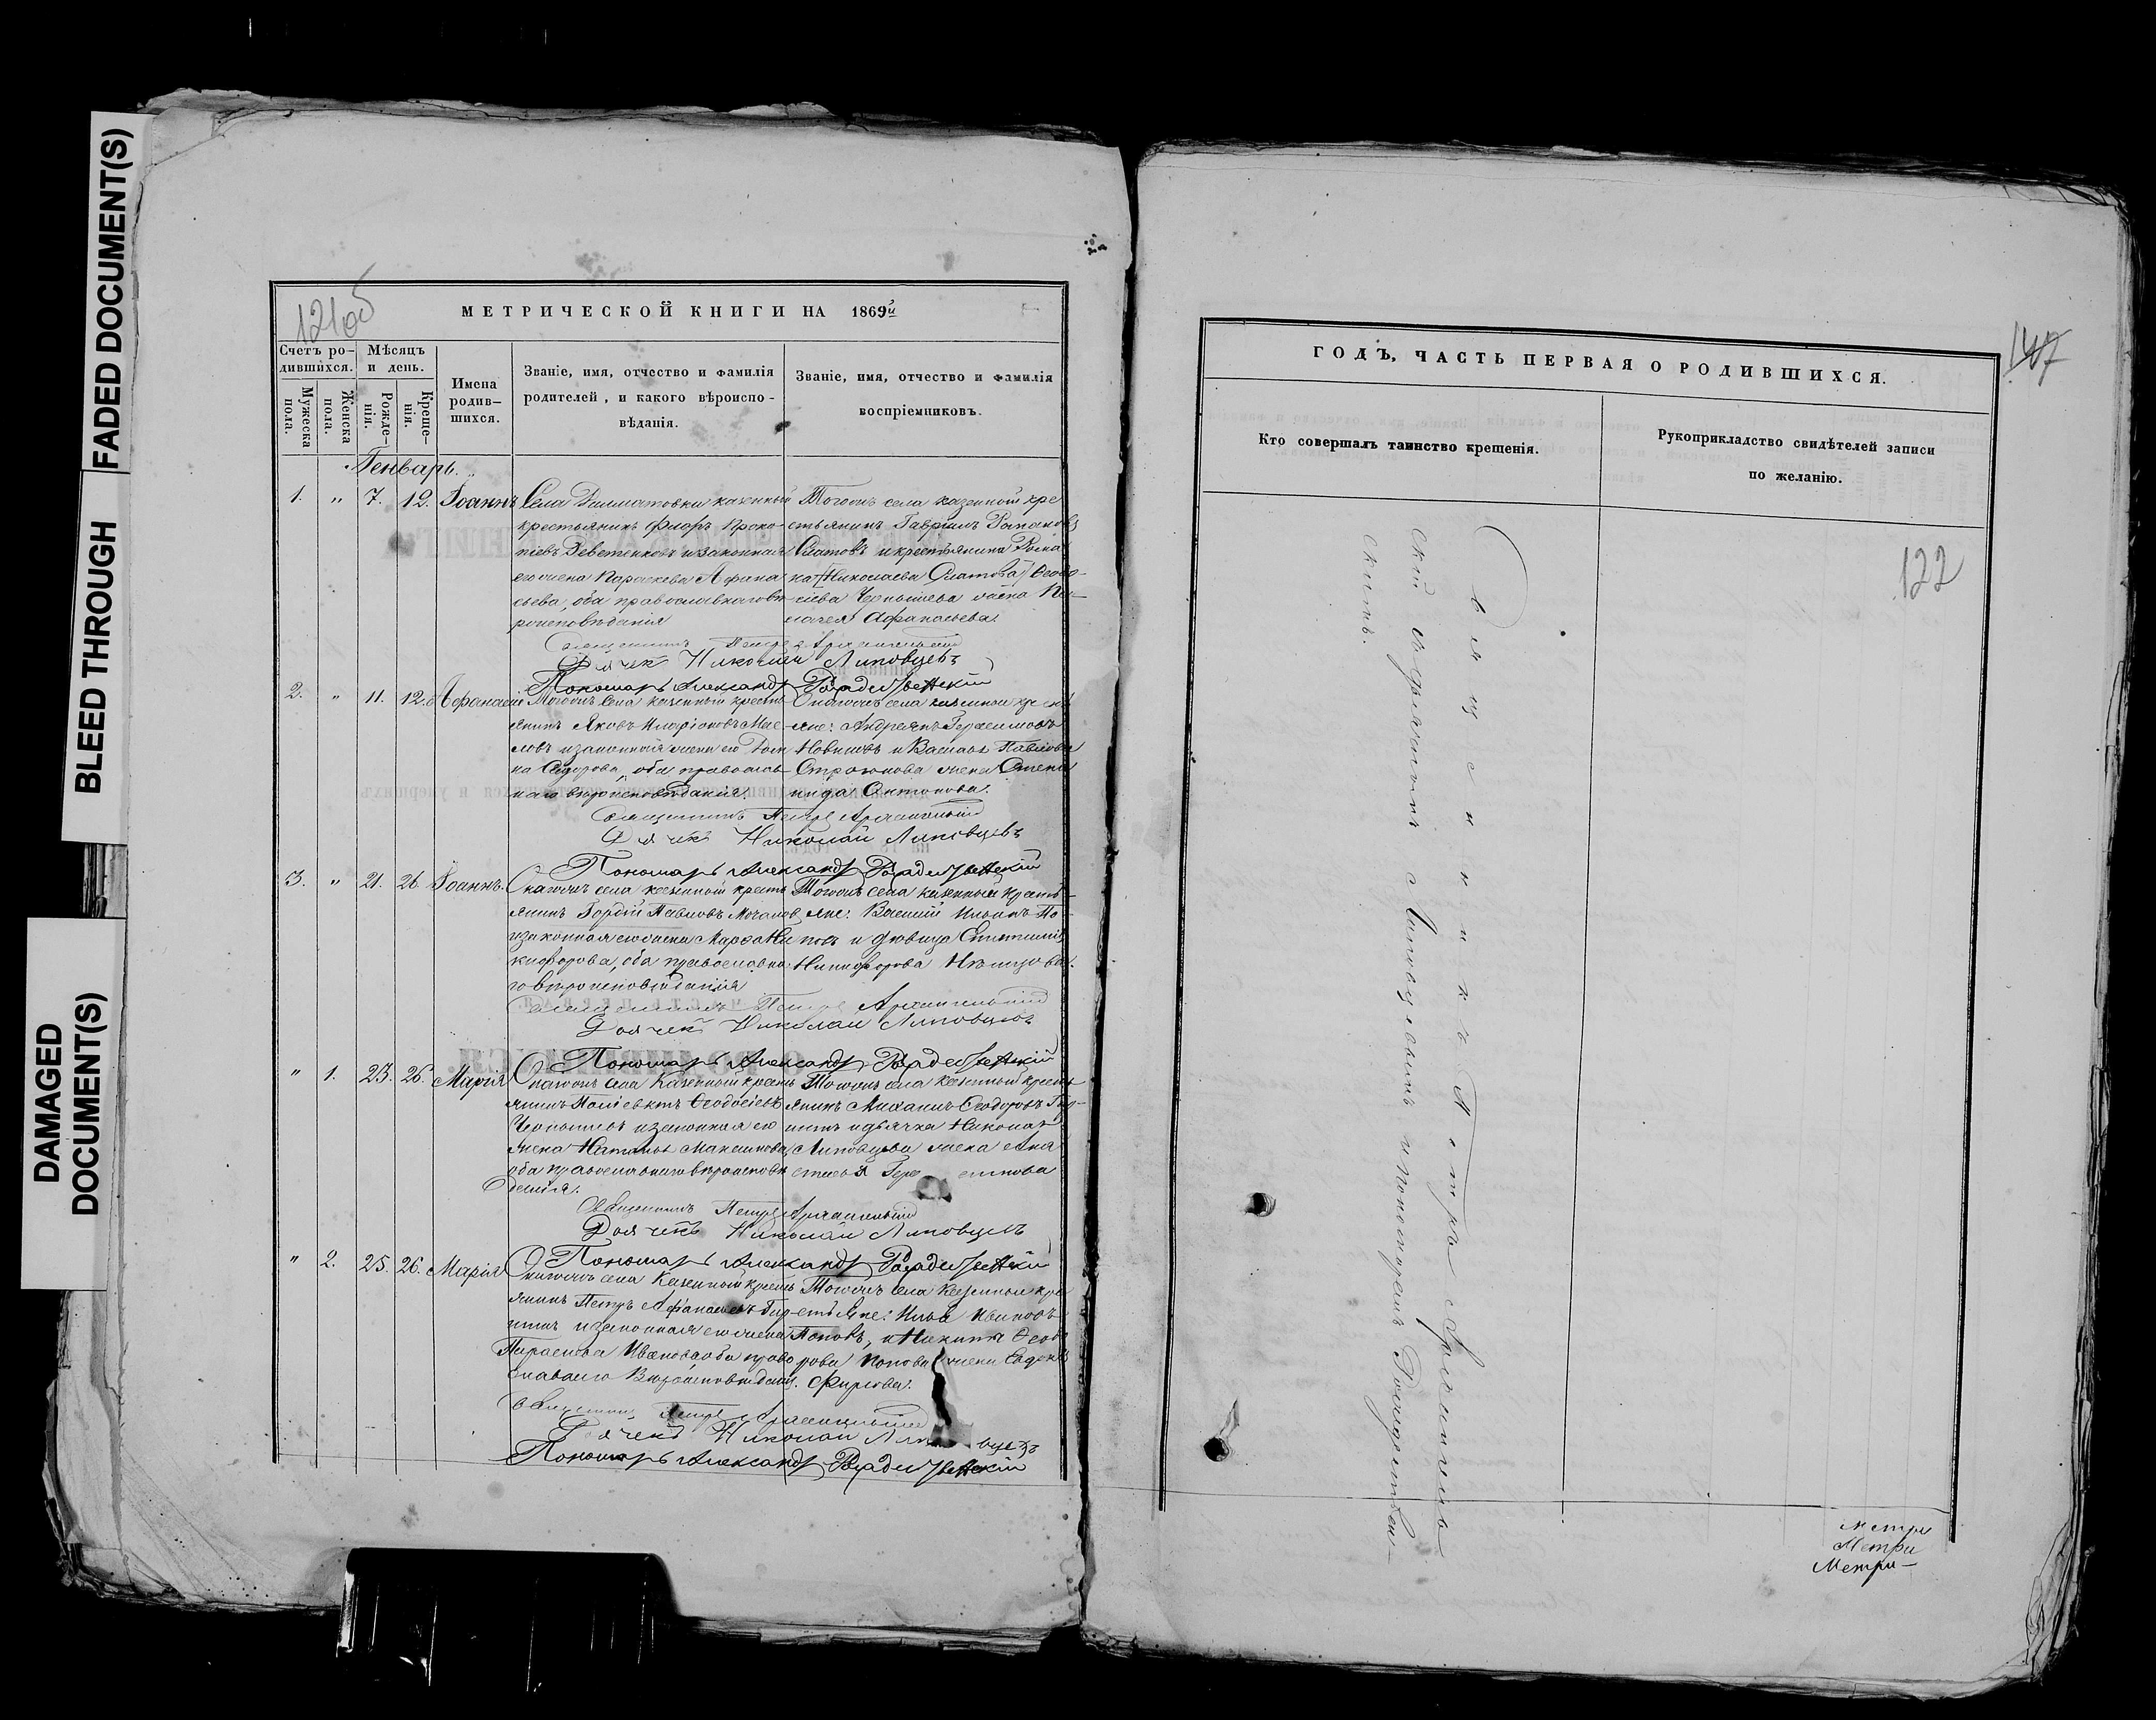 FADED DOCUMENT(S)
BLEED THROUGH
DAMAGED
DOCUMENT(S)
121об
МЕТРИЧЕСКОЙ КНИГИ НА 1869й
Счетъ ро-
дившихся.
Мѣсяцъ
и день.
Мужеска
пола.
Женска
пола.
Рожде-
нія.
Креще-
нія.
Имена
родив-
шихся.
Званіе, имя, отчество и фамилія
родителей, и какого вѣроиспо-
вѣданія.
Званіе, имя, отчество и фамилія
воспріемниковъ.
Генварь.
1. " 7. 12. Іоаннъ
Села казенный
крестьянинъ Флоръ Проко-
піевъ Деветенковъ и законная
его жена Параскева Афана
сьева, оба православнаго вѣ
роисповѣданія
Тогожъ села казенной кре
стьянинъ Гавріилъ Романовъ
Слатовъ и крестьянина Рома
на Николаева Слатова Ѳеодо-
сіева Чернышева жена Пе-
лагея Афанасьева.
Священникъ Петръ Архангельскій
Дьячекъ Николай Липовцевъ
Пономарь Александръ Рождественскій
2. " 11. 12. Афанасій
Тогожъ села казенный кресть
янинъ Яковъ Иларіоновъ
ловъ и законная жена его Дом
на Сидорова, оба православ-
наго вѣроисповѣданія.
Онагожъ села казенныи крест
яне: Андреянъ Герасимовъ
Новиковъ и Василья Павлова
Строкова жена Степа
нида Антонова.
Священникъ Петръ Архангельскій
Дьячекъ Николай Липовцевъ
Пономарь Александръ Рождественскій
3. " 21. 26 Іоаннъ.
Онагожъ села казенный кресть
янинъ Гордій Павловъ Мочалов
и законная его жена Марфа Ни
кифорова, оба православна
го вѣроисповѣданія
Тогожъ села казенный кресть-
яне: Василій Ильинъ По-
повъ и дѣвица
Никифорова Нѣмцова.
Священникъ Петръ Архангельскій
Дьячекъ Николай Липовцевъ
Пономарь Александръ Рождественскій
" 1. 23. 26. Марія
Онагожъ села Казенный кресть
янинъ Поліевктъ Ѳеодосіевъ
Чернышевъ и законная его
жена Наталья Максимова,
оба православнаго вѣроисповѣ
данія.
Тогожъ села казенный кресть
янинъ Михаилъ Ѳеодоровъ
и дьячка Николая
Липовцева жена Ана
стасья
Священникъ Петръ Архангельскій
Дьячекъ Николай Липовцевъ
Пономарь Александръ Рождественскій
" 2. 25. 26. Марія
Онагожъ села Казенный кресть
янинъ Петръ Афанасьевъ
и законная его жена
Параскева Иванова оба право
славнаго Вѣроисповѣданія.
Тогожъ села Казенныи кре
стьяне: Илья Ивановъ
Поповъ, и Никиты Ѳеодо
рова Попова жена Евдокія
Фирсова.
Священникъ Петръ Архангельскій
Дьячекъ Николай Липовцевъ
Пономарь Александръ Рождественскій
147
ГОДЪ, ЧАСТЬ ПЕРВАЯ О РОДИВШИХСЯ.
Кто совершалъ таинство крещенія.
Рукоприкладство свидѣтелей записи
по желанію.
122
Священникъ Петръ Архангель
скій съ дьячкомъ Липовцевымъ и пономаремъ Рождествен-
скимъ.
Метри
Метри
Метри-